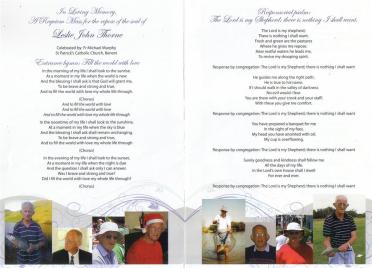 In Loving Memory,
A Requiem Mass for the repose of the soul of
Leslie John Thorne
Celebrated by: Fr Michael Murphy
St Patrick's Catholic Church,
Entrance hymn: Fill the world with love
In the morning of my life I shall look to the sunrise.
At a moment in my life when the world is new.
And the blessing I shall ask is that God will grant me,
To be brave and strong and true,
And to fill the world with love my whole life through
(Chorus)
And to fill the world with love
And to fill the world with love
And to fill the world with love my whole life through
(Chorus)
In the noontime of my life I shall look to the sunshine,
At a moment in my life when the sky is blue
And the blessing I shall ask shall remain unchanging,
To be brave and strong and true,
And to fill the world with love my whole life through
(Chorus)
In the evening of my life I shall look to the sunset,
At a moment in my life when the night is due
And the question I shall ask only I can answer,
Was I brave and strong and true?
Did I fill the world with love my whole life through?
(Chorus)
Responsorial psalm:
The Lord is my Shepherd; there is nothing I shall want.
The Lord is my Shepherd;
There is nothing I shall want.
Fresh and green are the pastures
Where he gives me repose.
Near restful waters he leads me,
To revive my drooping spirit.
Response by congregation: The Lord is my Shepherd; there is nothing I shall want
He guides me along the right path;
He is true to his name.
If I should walk in the valley of darkness
No evil would I fear.
You are there with your crook and your staff;
With these you give me comfort.
Response by congregation: The Lord is my Shepherd; there is nothing I shall want
You have prepared a banquet for me
In the sight of my foes.
My head you have anointed with oil;
My cup is overflowing.
Response by congregation: The Lord is my Shepherd; there is nothing I shall want
Surely goodness and kindness shall follow me
All the days of my life.
In the Lord's own house shall I dwell
For ever and ever.
Response by congregation: The Lord is my Shepherd; there is nothing I shall want